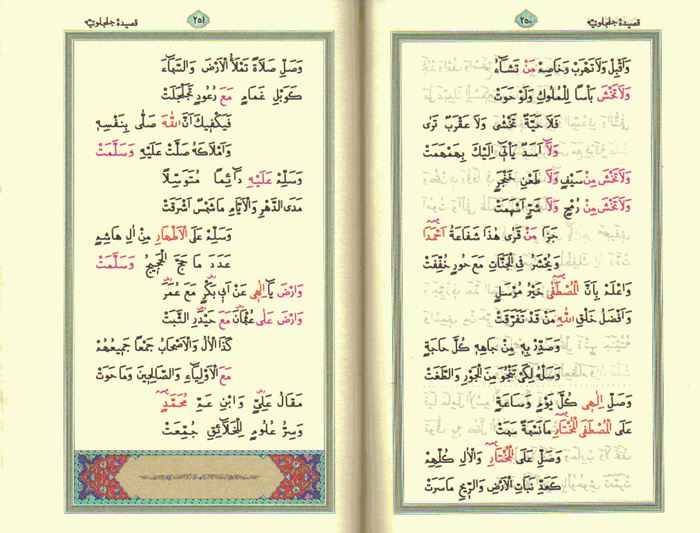 قصيدۀ جلجلوتيه
٢٥٠
وَاَقْبِلْ وَلَا تَهْرَبْ وَخَاصِمْ مَنْ تَشَاءُ
وَلَا تَخْشَ بَأْسًا لِلْمُلُوكِ وَلَوْ حَوَتْ
فَلَا حَيَّةٌ تَخْشٰى وَلَا عَقْرَبٌ تَرٰى
وَلَا اَسَدٌ يَأْتِى اِلَيْكَ بِهَمْهَمَتْ
وَلَا تَخْشَ مِنْ سَيْفٍ وَلَا طَعْنِ خَنْجَرٍ
وَلَا تَخْشَ مِنْ رُمْحٍ وَلَا شَرٍّ اَسْهَمَتْ
جَزَا مَنْ قَرَى هٰذَا شَفَاعَةُ اَحْمَدَا
وَيُحْشَرُ فِى الْجَنَّاتِ مَعَ حُورٍ حُفِّفَتْ
وَاعْلَمْ بِاَنَّ الْمُصْطَفٰى خَيْرُ مُرْسَلٍ
وَاَفْضَلُ خَلْقِ اللّٰهِ مَنْ قَدْ تَفَرَّقَتْ
وَصَدِّرْ بِهِ مِنْ جَاهِهِ كُلَّ حَاجَةٍ
وَسَلْهُ لِكَىْ تَنْجُوَ مِنَ الْجَوْرِ وَالطَّغَتْ
وَصَلِّ اِلٰهِى كُلَّ يَوْمٍ وَسَاعَةٍ
عَلَى الْمُصْطَفَى الْمُخْتَارِ مَا نَسْمَةٌ سَمَتْ
وَصَلِّ عَلَى الْمُخْتَارِ وَالْاٰلِ كُلِّهِمْ
كَعَدِّ نَبَاتِ الْاَرْضِ وَالرِّيحِ مَا سَرَتْ
قصيدۀ جلجلوتيه
٢٥١
وَصَلِّ صَلَاةً تَمْلَأُ الْاَرْضَ وَالسَّمَاءَ
كَوَبْلِ غَمَامٍ مَعَ رُعُودٍ تَجَلْجَلَتْ
فَيَكْفِيكَ اَنَّ اللّٰهَ صَلّٰى بِنَفْسِهِ
وَاَمْلَاكَهُ صَلَّتْ عَلَيْهِ وَسَلَّمَتْ
وَسَلِّمْ عَلَيْهِ دَائِمًا مُتَوَسِّلًا
مَدَى الدَّهْرِ وَالْاَيَّامِ مَا شَمْسٌ اَشْرَقَتْ
وَسَلِّمْ عَلَى الْاَطْهَارِ مِنْ اٰلِ هَاشِمٍ
عَدَدَ مَا حَجَّ الْحَجِيجُ وَسَلَّمَتْ
وَارْضَ يَا اِلٰهِى عَنْ اَبِى بَكْرٍ مَعَ عُمَرْ
وَارْضَ عَلٰى عُثْمَانَ مَعَ حَيْدَرِ الثَّبَتْ
كَذَا الْاٰلُ وَالْاَصْحَابُ جَمْعًا جَمِيعُهُمْ
مَعَ الْاَوْلِيَاءِ وَالصَّالِحِينَ وَمَا حَوَتْ
مَقَالُ عَلِىٍّ وَابْنِ عَمِّ مُحَمَّدٍ
وَسِرُّ عُلُومٍ لِلْخَلَائِقِ جُمِّعَتْ